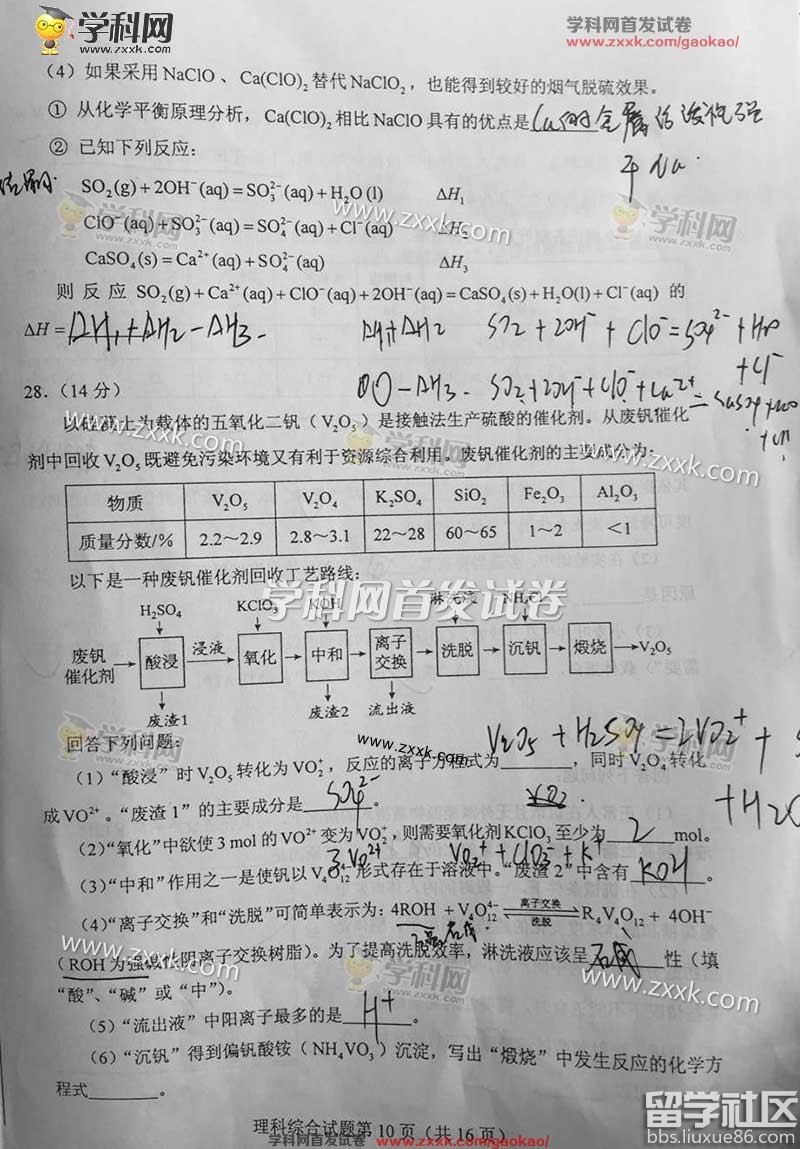 学科网 学科网首发试卷
www.zxxk.com www.zxxk.com/gaokao/
(4) 如果采用NaClO、Ca(ClO)₂替代NaClO₂,也能得到较好的烟气脱硫效果。
① 从化学平衡原理分析,Ca(ClO)₂相比NaClO具有的优点是
② 已知下列反应:
SO₂(g)+2OH⁻(aq)=SO₃²⁻(aq)+H₂O(l) ΔH₁
ClO⁻(aq)+SO₃²⁻(aq)=SO₄²⁻(aq)+Cl⁻(aq) ΔH₂
CaSO₄(s)=Ca²⁺(aq)+SO₄²⁻(aq) ΔH₃
则反应 SO₂(g)+Ca²⁺(aq)+ClO⁻(aq)+2OH⁻(aq)=CaSO₄(s)+H₂O(l)+Cl⁻(aq) 的
ΔH=ΔH₁+ΔH₂-ΔH₃
28.(14分)
以硅藻土为载体的五氧化二钒(V₂O₅)是接触法生产硫酸的催化剂。从废钒催化
剂中回收V₂O₅既避免污染环境又有利于资源综合利用。废钒催化剂的主要成分为:
物质 V₂O₅ V₂O₄ K₂SO₄ SiO₂ Fe₂O₃ Al₂O₃
质量分数/% 2.2~2.9 2.8~3.1 22~28 60~65 1~2 <1
以下是一种废钒催化剂回收工艺路线:
学科网首发试卷
H₂SO₄ KClO₃ KOH 淋洗液 NH₄Cl
废钒催化剂 酸浸 浸液 氧化 中和 离子交换 洗脱 沉钒 煅烧 V₂O₅
废渣1 废渣2 流出液
回答下列问题:
V₂O₅+H₂SO₄=2VO₂⁺+
(1)“酸浸”时V₂O₅转化为VO₂⁺,反应的离子方程式为________,同时V₂O₄转化
成VO²⁺。“废渣1”的主要成分是SO₄²⁻。
+H₂O
(2)“氧化”中欲使3 mol的VO²⁺变为VO₂⁺,则需要氧化剂KClO₃至少为 2 mol。
3VO²⁺ VO₂⁺+ClO₃⁻+K⁺
(3)“中和”作用之一是使钒以V₄O₁₂⁴⁻形式存在于溶液中。“废渣2”中含有 KOH 。
(4)“离子交换”和“洗脱”可简单表示为:4ROH+V₄O₁₂⁴⁻ 离子交换 洗脱 R₄V₄O₁₂+4OH⁻
(ROH为强碱性阴离子交换树脂)。为了提高洗脱效率,淋洗液应该呈________性(填
“酸”、“碱”或“中”)。
(5)“流出液”中阳离子最多的是 H⁺ 。
(6)“沉钒”得到偏钒酸铵(NH₄VO₃)沉淀,写出“煅烧”中发生反应的化学方
程式________。
理科综合试题第10页(共16页)
学科网首发试卷 www.zxxk.com/gaokao/
留学社区
bbs.liuxue86.com